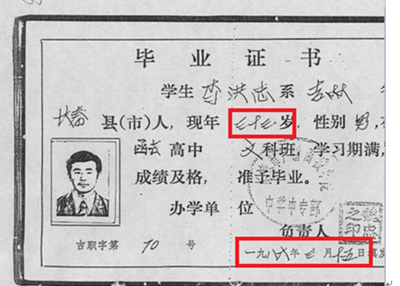 毕业证书
学生 李洪志 系 吉林
长春 县(市)人,现年 三十三 岁,性别 男,
函 高中 文 科班,学习期满,
成绩及格,准予毕业。
中学中专部
办学单位
负责人
之印
吉职字第 70 号
一九八六年 三 月 十五 日填发